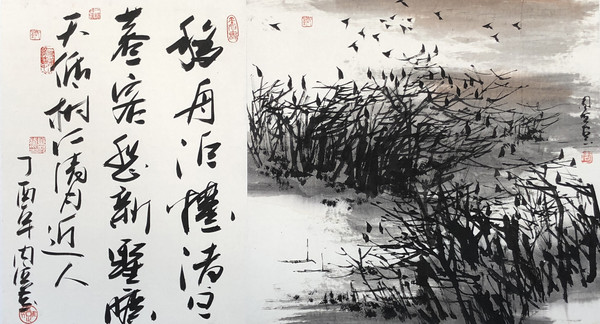 移舟泊煙渚日
暮客愁新野曠
天低树江清月近人
丁酉年周